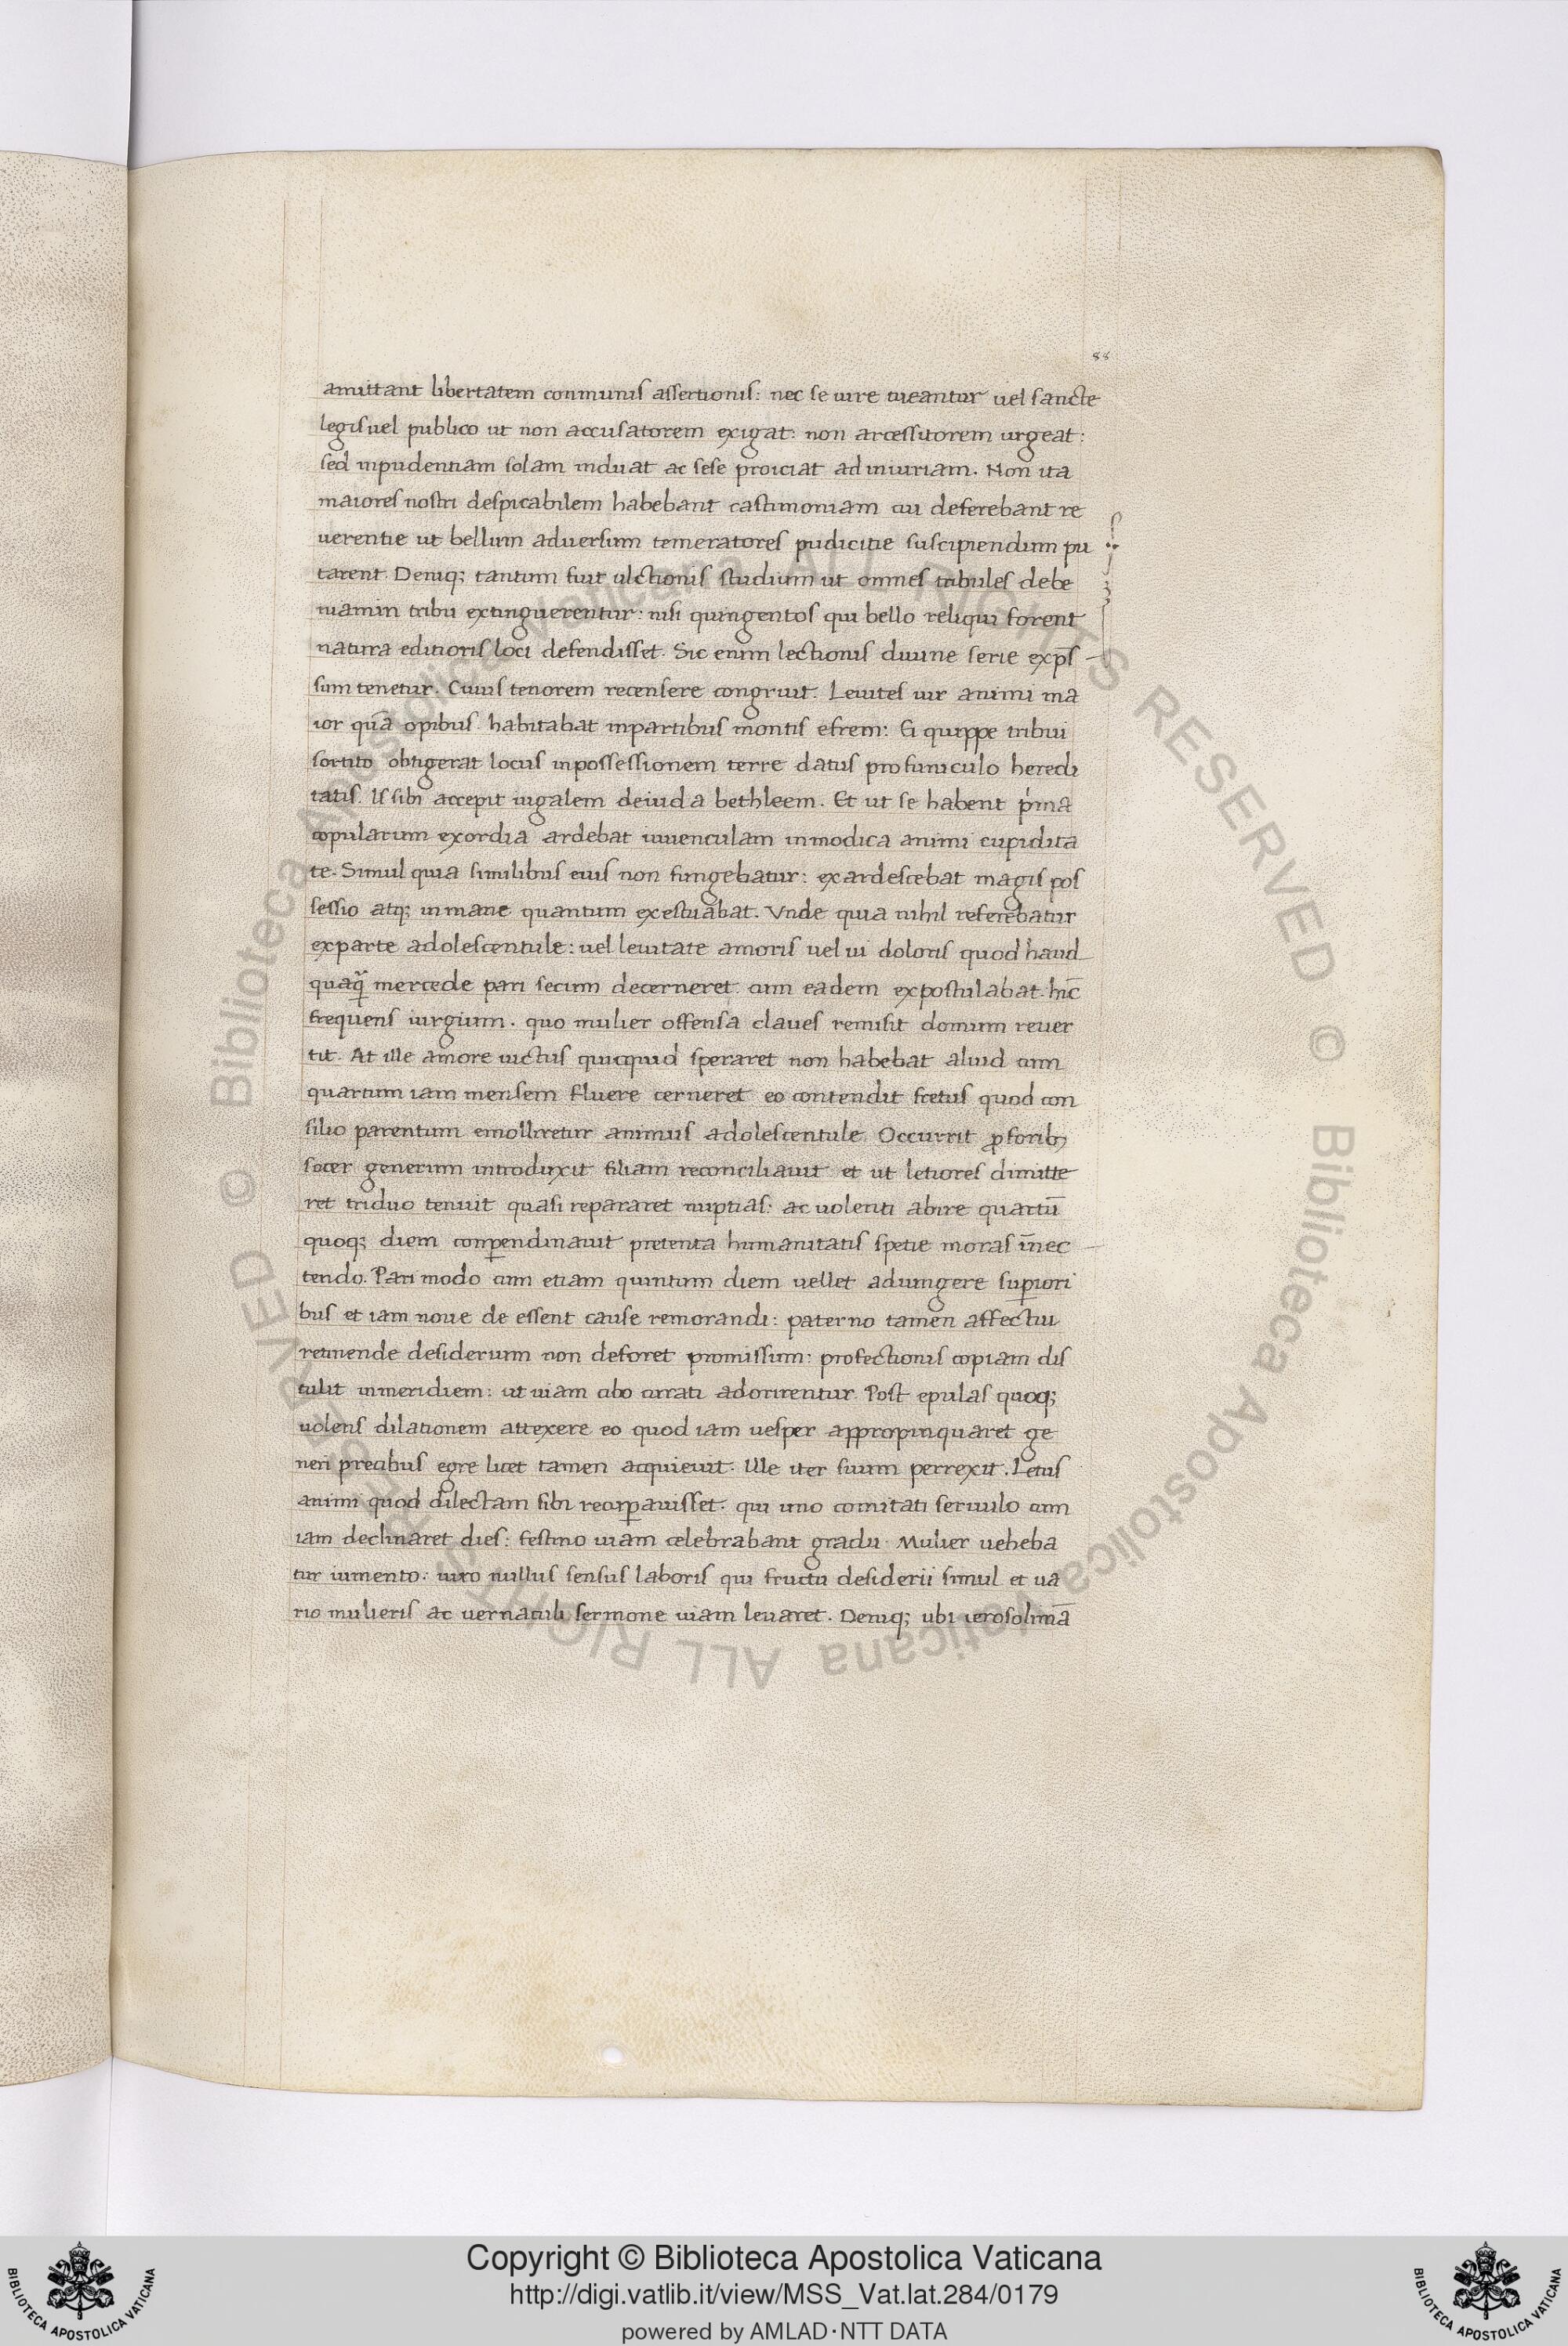 88
amittant libertatem conmunis assertionis: nec se iure tueantur uel sancte
legis uel publico ut non accusatorem exigat: non arcessitorem urgeat:
sed inpudentiam solam induat ac sese proiciat ad iniuriam. Non ita
maiores nostri despicabilem habebant castimoniam cui deferebant re
uerentie ut bellum aduersum temeratores pudicitie suscipiendum pu
tarent. Deniq; tantum fuit ulctionis studium ut omnes tribules debe
niamin tribu extinguerentur: nisi quingentos qui bello reliqui forent
natura editioris loci defendisset. Sic enim lectionis diuine serie exp̄s
sum tenetur. Cuius tenorem recensere congruit. Leuites uir animi ma
ior quā opibus habitabat inpartibus montis efrem: Ei quippe tribui
sortito obtigerat locus inpossessionem terre datus pro funiculo heredi
tatis. Is sibi accepit iugalem deiuda bethleem. Et ut se habent p'ma
copularum exordia ardebat iuuenculam inmodica animi cupidita
te. Simul quia similibus eius non fungebatur: exardescebat magis pos
sessio atq; inmane quantum exestuabat. Vnde quia nihil referebatur
exparte adolescentule: uel leuitate amoris uel ui doloris quod haud
quaq̃ mercede pari secum decerneret. cum eadem expostulabat. hīc
frequens iurgium. quo mulier offensa claues remisit domum reuer
tit. At ille amore uictus quicquid speraret non habebat aliud cum
quartum iam mensem fluere cerneret eo contendit fretus quod con
silio parentum emolliretur animus adolescentule. Occurrit ꝓforibȝ
socer generum introduxit filiam reconciliauit et ut letiores dimitte
ret triduo tenuit quasi repararet nuptias: ac uolenti abire quartū
quoq; diem conꝑendinauit pretenta humanitatis spetie moras īnec
tendo. Pari modo cum etiam quintum diem uellet adiungere suꝑiori
bus et iam noue de essent cause remorandi: paterno tamen affectui
retinende desiderium non deforet promissum: profectionis copiam dis
tulit inmeridiem: ut uiam cibo curati adorirentur. Post epulas quoq;
uolens dilationem attexere eo quod iam uesper appropinquaret ge
neri precibus egre licet tamen acquieuit. Ille iter suum perrexit. Letus
animi quod dilectam sibi recuꝑauisset. qui uno comitati seruulo cum
iam declinaret dies: festino uiam celebrabant gradu. Mulier ueheba
tur iumento: uiro nullus sensus laboris qui fructu desiderii simul et ua
rio mulieris ac uernaculi sermone uiam leuaret. Deniq; ubi ierosolimā
Copyright © Biblioteca Apostolica Vaticana
http://digi.vatlib.it/view/MSS_Vat.lat.284/0179
powered by AMLAD·NTT DATA
BIBLIOTECA APOSTOLICA VATICANA
BIBLIOTECA APOSTOLICA VATICANA